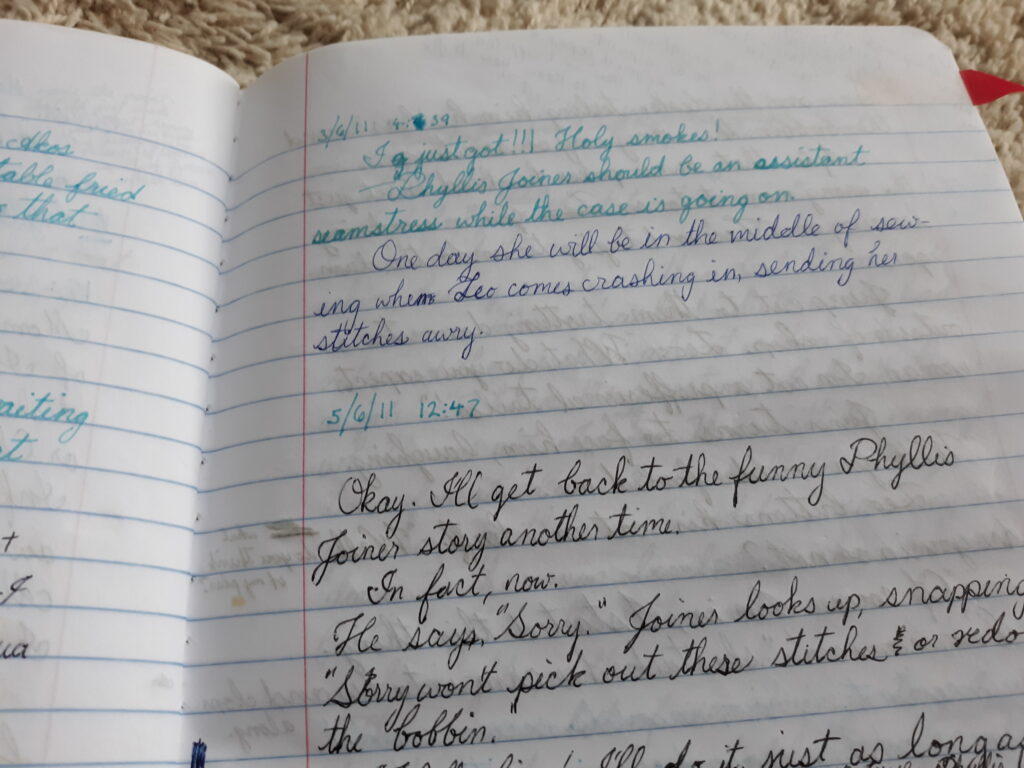 okos
table fried
that
aiting
5/6/11
I g just got!!! Holy smokes!
Phyllis Joiner should be an assistant
seamstress while the case is going on.
One day she will be in the middle of sew-
ing when Leo comes crashing in, sending her
stitches awry.
5/6/11 12:47
Okay. I'll get back to the funny Phyllis
Joiner story another time.
In fact, now.
He says, "Sorry." Joiner looks up, snapping
"Sorry won't pick out these stitches or redo
the bobbin."
I'll do it just as long a